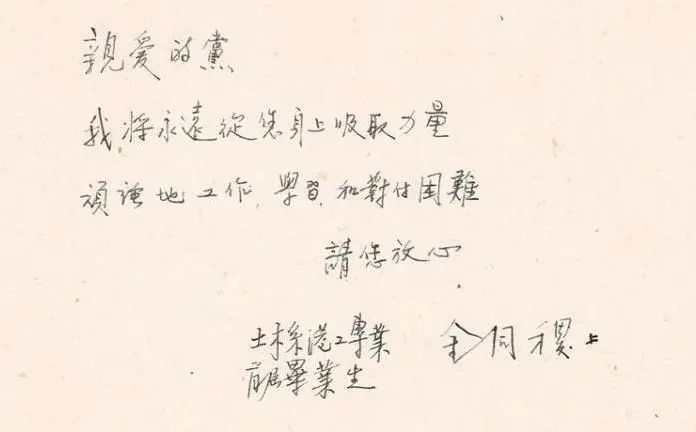 親愛的黨
我将永遠從您身上吸取力量
頑強地工作,學習,和對付困難
請您放心
土木系港工專業 金同稷上
首屆畢業生